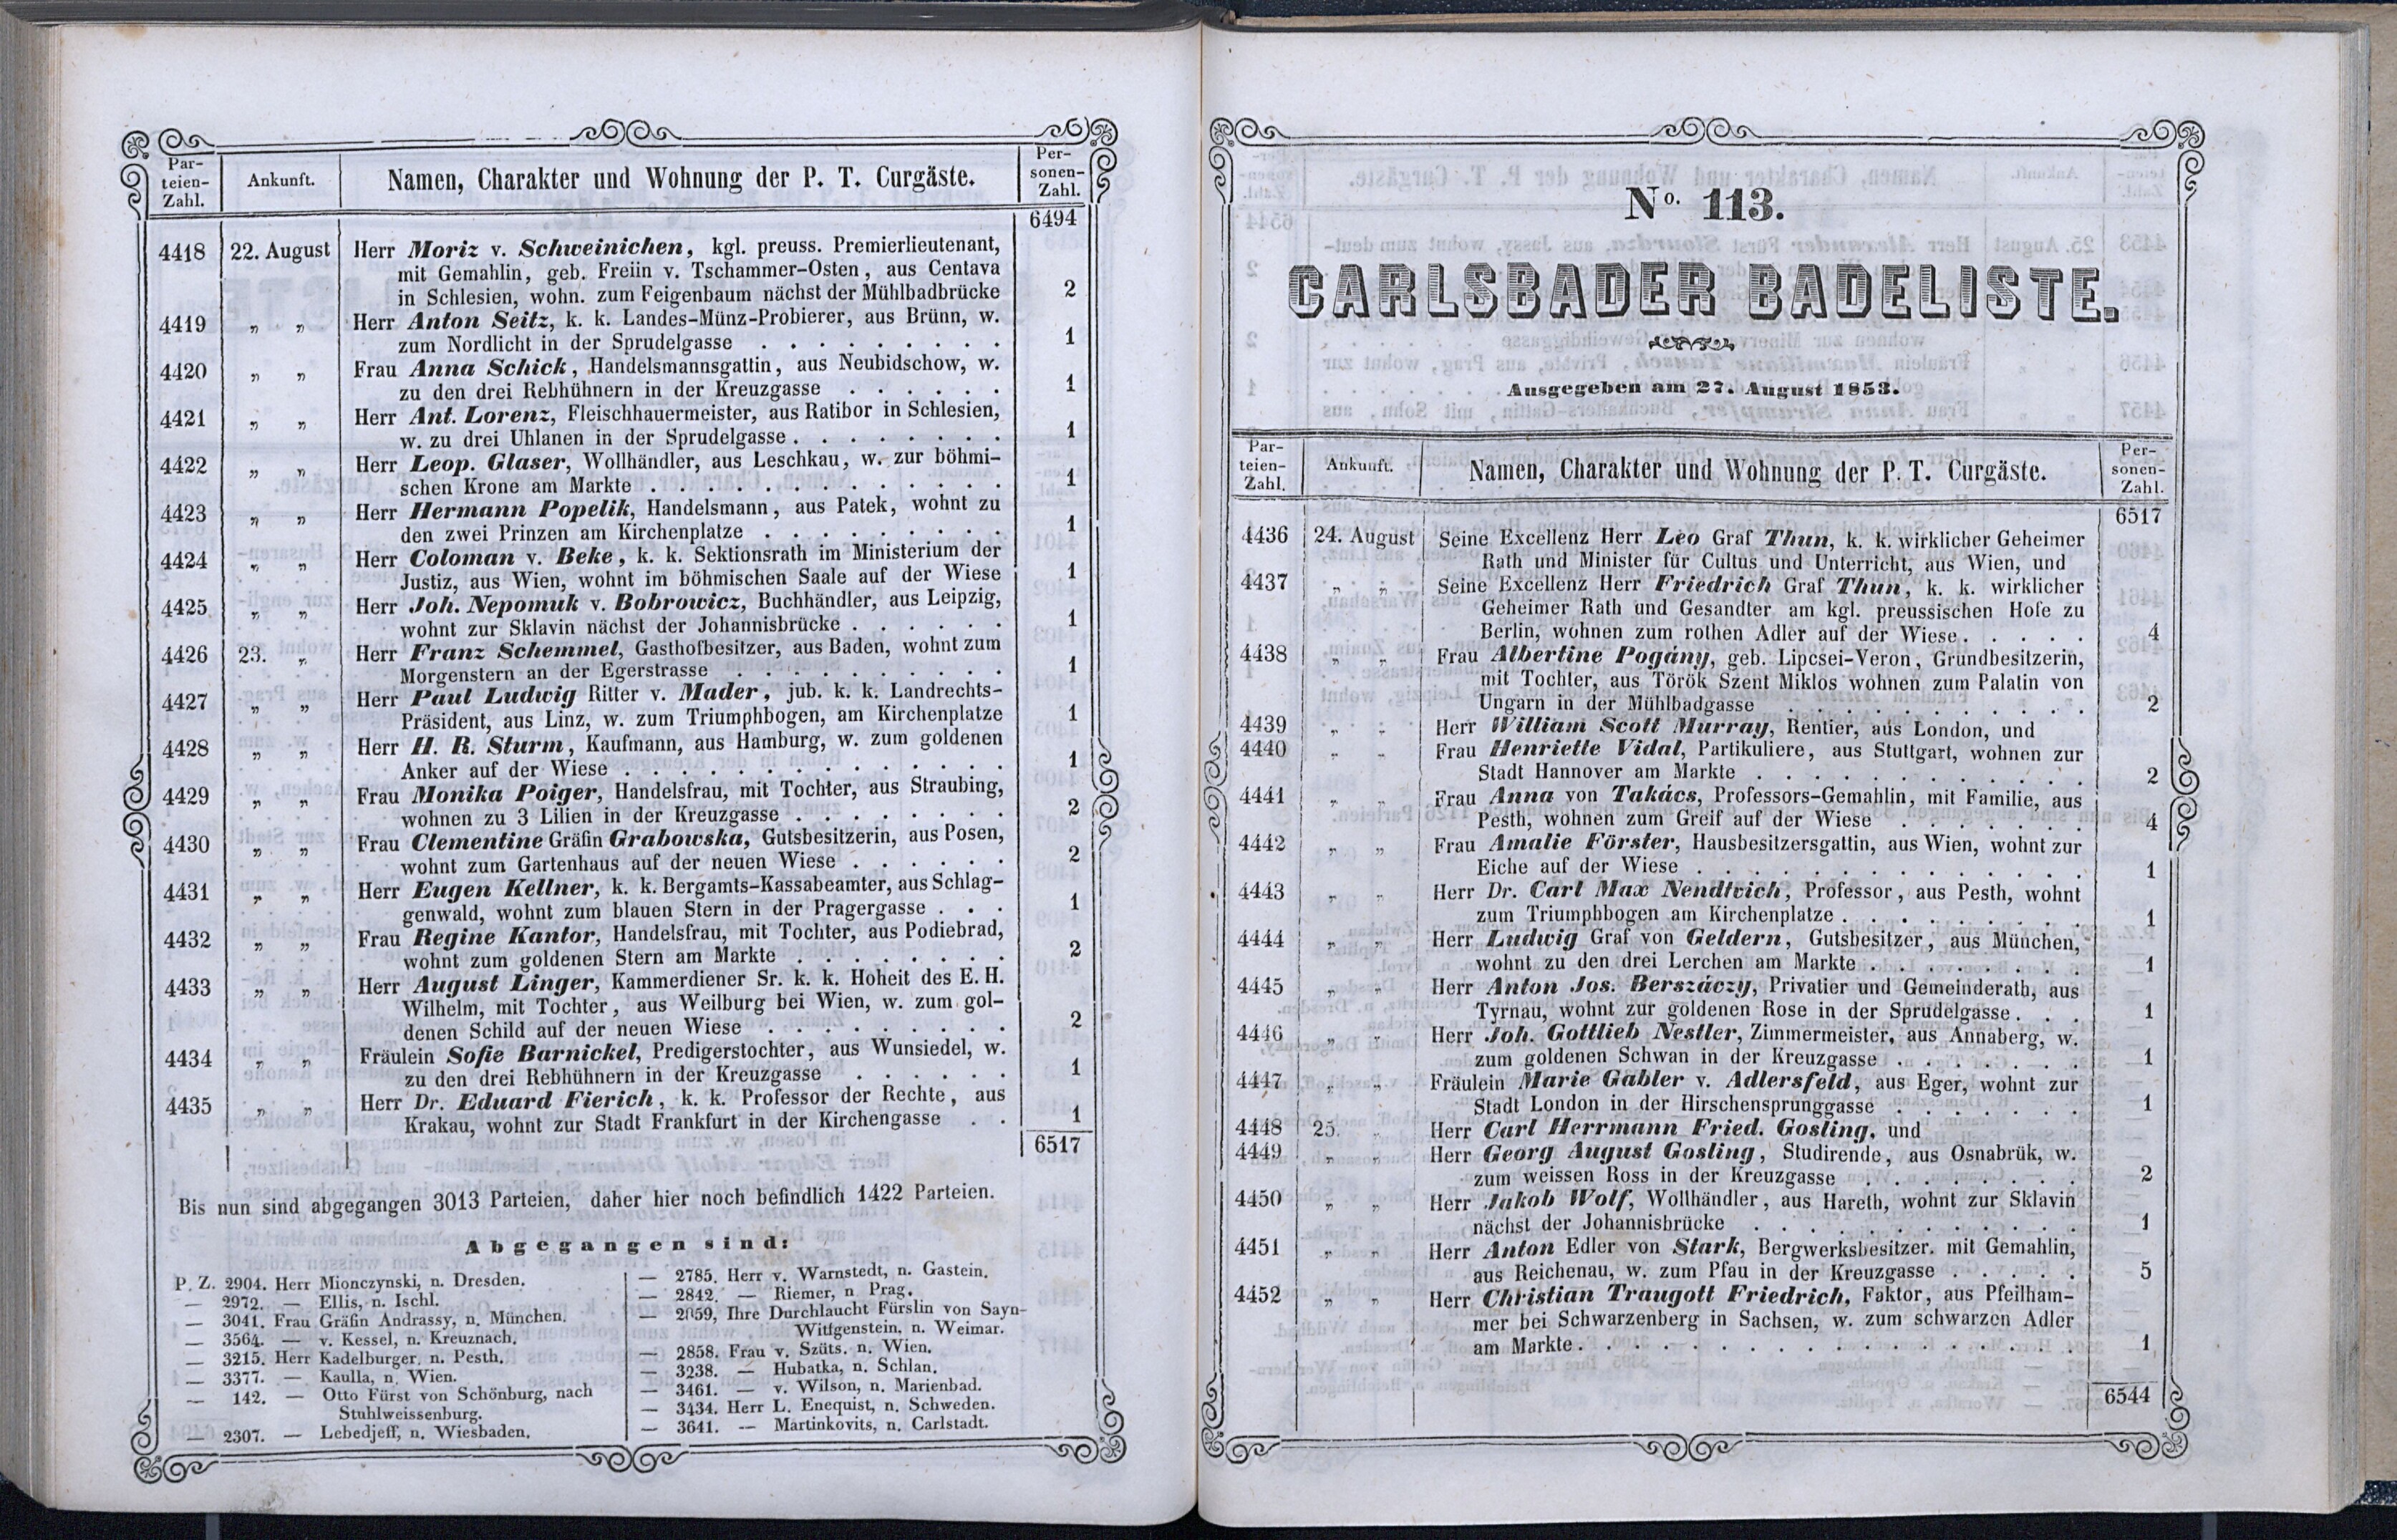 Par-
teien-
Zahl.
Ankunft.
Namen, Charakter und Wohnung der P. T. Curgäste.
Per-
sonen-
Zahl.
6494
4418 22. August Herr Moriz v. Schweinichen, kgl. preuss. Premierlieutenant,
mit Gemahlin, geb. Freiin v. Tschammer-Osten, aus Centava
in Schlesien, wohn. zum Feigenbaum nächst der Mühlbadbrücke 2
4419 „ „ Herr Anton Seitz, k. k. Landes-Münz-Probierer, aus Brünn, w.
zum Nordlicht in der Sprudelgasse . . . . . . . . . 1
4420 „ „ Frau Anna Schick, Handelsmannsgattin, aus Neubidschow, w.
zu den drei Rebhühnern in der Kreuzgasse . . . . . . 1
4421 „ „ Herr Ant. Lorenz, Fleischhauermeister, aus Ratibor in Schlesien,
w. zu drei Uhlanen in der Sprudelgasse . . . . . . . . 1
4422 „ „ Herr Leop. Glaser, Wollhändler, aus Leschkau, w. zur böhmi-
schen Krone am Markte . . . . . . . . . . . . . 1
4423 „ „ Herr Hermann Popelik, Handelsmann, aus Patek, wohnt zu
den zwei Prinzen am Kirchenplatze . . . . . . . . . 1
4424 „ „ Herr Coloman v. Beke, k. k. Sektionsrath im Ministerium der
Justiz, aus Wien, wohnt im böhmischen Saale auf der Wiese 1
4425 „ „ Herr Joh. Nepomuk v. Bobrowicz, Buchhändler, aus Leipzig,
wohnt zur Sklavin nächst der Johannisbrücke . . . . . . 1
4426 23. „ Herr Franz Schemmel, Gasthofbesitzer, aus Baden, wohnt zum
Morgenstern an der Egerstrasse . . . . . . . . . . 1
4427 „ „ Herr Paul Ludwig Ritter v. Mader, jub. k. k. Landrechts-
Präsident, aus Linz, w. zum Triumphbogen, am Kirchenplatze 1
4428 „ „ Herr H. R. Sturm, Kaufmann, aus Hamburg, w. zum goldenen
Anker auf der Wiese . . . . . . . . . . . . . . 1
4429 „ „ Frau Monika Poiger, Handelsfrau, mit Tochter, aus Straubing,
wohnen zu 3 Lilien in der Kreuzgasse . . . . . . . . 2
4430 „ „ Frau Clementine Gräfin Grabowska, Gutsbesitzerin, aus Posen,
wohnt zum Gartenhaus auf der neuen Wiese . . . . . . 2
4431 „ „ Herr Eugen Kellner, k. k. Bergamts-Kassabeamter, aus Schlag-
genwald, wohnt zum blauen Stern in der Pragergasse . . . 1
4432 „ „ Frau Regine Kantor, Handelsfrau, mit Tochter, aus Podiebrad,
wohnt zum goldenen Stern am Markte . . . . . . . . 2
4433 „ „ Herr August Linger, Kammerdiener Sr. k. k. Hoheit des E. H.
Wilhelm, mit Tochter, aus Weilburg bei Wien, w. zum gol-
denen Schild auf der neuen Wiese . . . . . . . . . 2
4434 „ „ Fräulein Sofie Barnickel, Predigerstochter, aus Wunsiedel, w.
zu den drei Rebhühnern in der Kreuzgasse . . . . . . 1
4435 „ „ Herr Dr. Eduard Fierich, k. k. Professor der Rechte, aus
Krakau, wohnt zur Stadt Frankfurt in der Kirchengasse . . 1
6517
Bis nun sind abgegangen 3013 Parteien, daher hier noch befindlich 1422 Parteien.
Abgegangen sind:
P. Z. 2904. Herr Mionczynski, n. Dresden.
— 2972. — Ellis, n. Ischl.
— 3041. Frau Gräfin Andrassy, n. München.
— 3564. — v. Kessel, n. Kreuznach.
— 3215. Herr Kadelburger, n. Pesth.
— 3377. — Kaulla, n. Wien.
— 142. — Otto Fürst von Schönburg, nach
Stuhlweissenburg.
— 2307. — Lebedjeff, n. Wiesbaden.
— 2785. Herr v. Warnstedt, n. Gastein.
— 2842. — Riemer, n Prag.
— 2059, Ihre Durchlaucht Fürstin von Sayn-
Wittgenstein, n. Weimar.
— 2858. Frau v. Szüts. n. Wien.
— 3238. — Hubatka, n. Schlan.
— 3461. — v. Wilson, n. Marienbad.
— 3434. Herr L. Enequist, n. Schweden.
— 3641. — Martinkovits, n. Carlstadt.
No. 113.
CARLSBADER BADELISTE.
Ausgegeben am 27. August 1853.
Par-
teien-
Zahl.
Ankunft.
Namen, Charakter und Wohnung der P. T. Curgäste.
Per-
sonen-
Zahl.
6517
4436 24. August Seine Excellenz Herr Leo Graf Thun, k. k. wirklicher Geheimer
Rath und Minister für Cultus und Unterricht, aus Wien, und
4437 „ „ Seine Excellenz Herr Friedrich Graf Thun, k. k. wirklicher
Geheimer Rath und Gesandter am kgl. preussischen Hofe zu
Berlin, wohnen zum rothen Adler auf der Wiese . . . . . 4
4438 „ „ Frau Albertine Pogány, geb. Lipcsei-Veron, Grundbesitzerin,
mit Tochter, aus Török Szent Miklos wohnen zum Palatin von
Ungarn in der Mühlbadgasse . . . . . . . . . . . 2
4439 „ „ Herr William Scott Murray, Rentier, aus London, und
4440 „ „ Frau Henriette Vidal, Partikuliere, aus Stuttgart, wohnen zur
Stadt Hannover am Markte . . . . . . . . . . . . 2
4441 „ „ Frau Anna von Takács, Professors-Gemahlin, mit Familie, aus
Pesth, wohnen zum Greif auf der Wiese . . . . . . . 4
4442 „ „ Frau Amalie Förster, Hausbesitzersgattin, aus Wien, wohnt zur
Eiche auf der Wiese . . . . . . . . . . . . . . 1
4443 „ „ Herr Dr. Carl Max Nendtvich, Professor, aus Pesth, wohnt
zum Triumphbogen am Kirchenplatze . . . . . . . . . 1
4444 „ „ Herr Ludwig Graf von Geldern, Gutsbesitzer, aus München,
wohnt zu den drei Lerchen am Markte . . . . . . . . 1
4445 „ „ Herr Anton Jos. Berszáczy, Privatier und Gemeinderath, aus
Tyrnau, wohnt zur goldenen Rose in der Sprudelgasse . . . 1
4446 „ „ Herr Joh. Gottlieb Nestler, Zimmermeister, aus Annaberg, w.
zum goldenen Schwan in der Kreuzgasse . . . . . . . 1
4447 „ „ Fräulein Marie Gabler v. Adlersfeld, aus Eger, wohnt zur
Stadt London in der Hirschensprunggasse . . . . . . . 1
4448 25. „ Herr Carl Herrmann Fried. Gosling, und
4449 „ „ Herr Georg August Gosling, Studirende, aus Osnabrük, w.
zum weissen Ross in der Kreuzgasse . . . . . . . . 2
4450 „ „ Herr Jakob Wolf, Wollhändler, aus Hareth, wohnt zur Sklavin
nächst der Johannisbrücke . . . . . . . . . . . . 1
4451 „ „ Herr Anton Edler von Stark, Bergwerksbesitzer. mit Gemahlin,
aus Reichenau, w. zum Pfau in der Kreuzgasse . . . . . 5
4452 „ „ Herr Christian Traugott Friedrich, Faktor, aus Pfeilham-
mer bei Schwarzenberg in Sachsen, w. zum schwarzen Adler
am Markte . . . . . . . . . . . . . . . . . . 1
6544